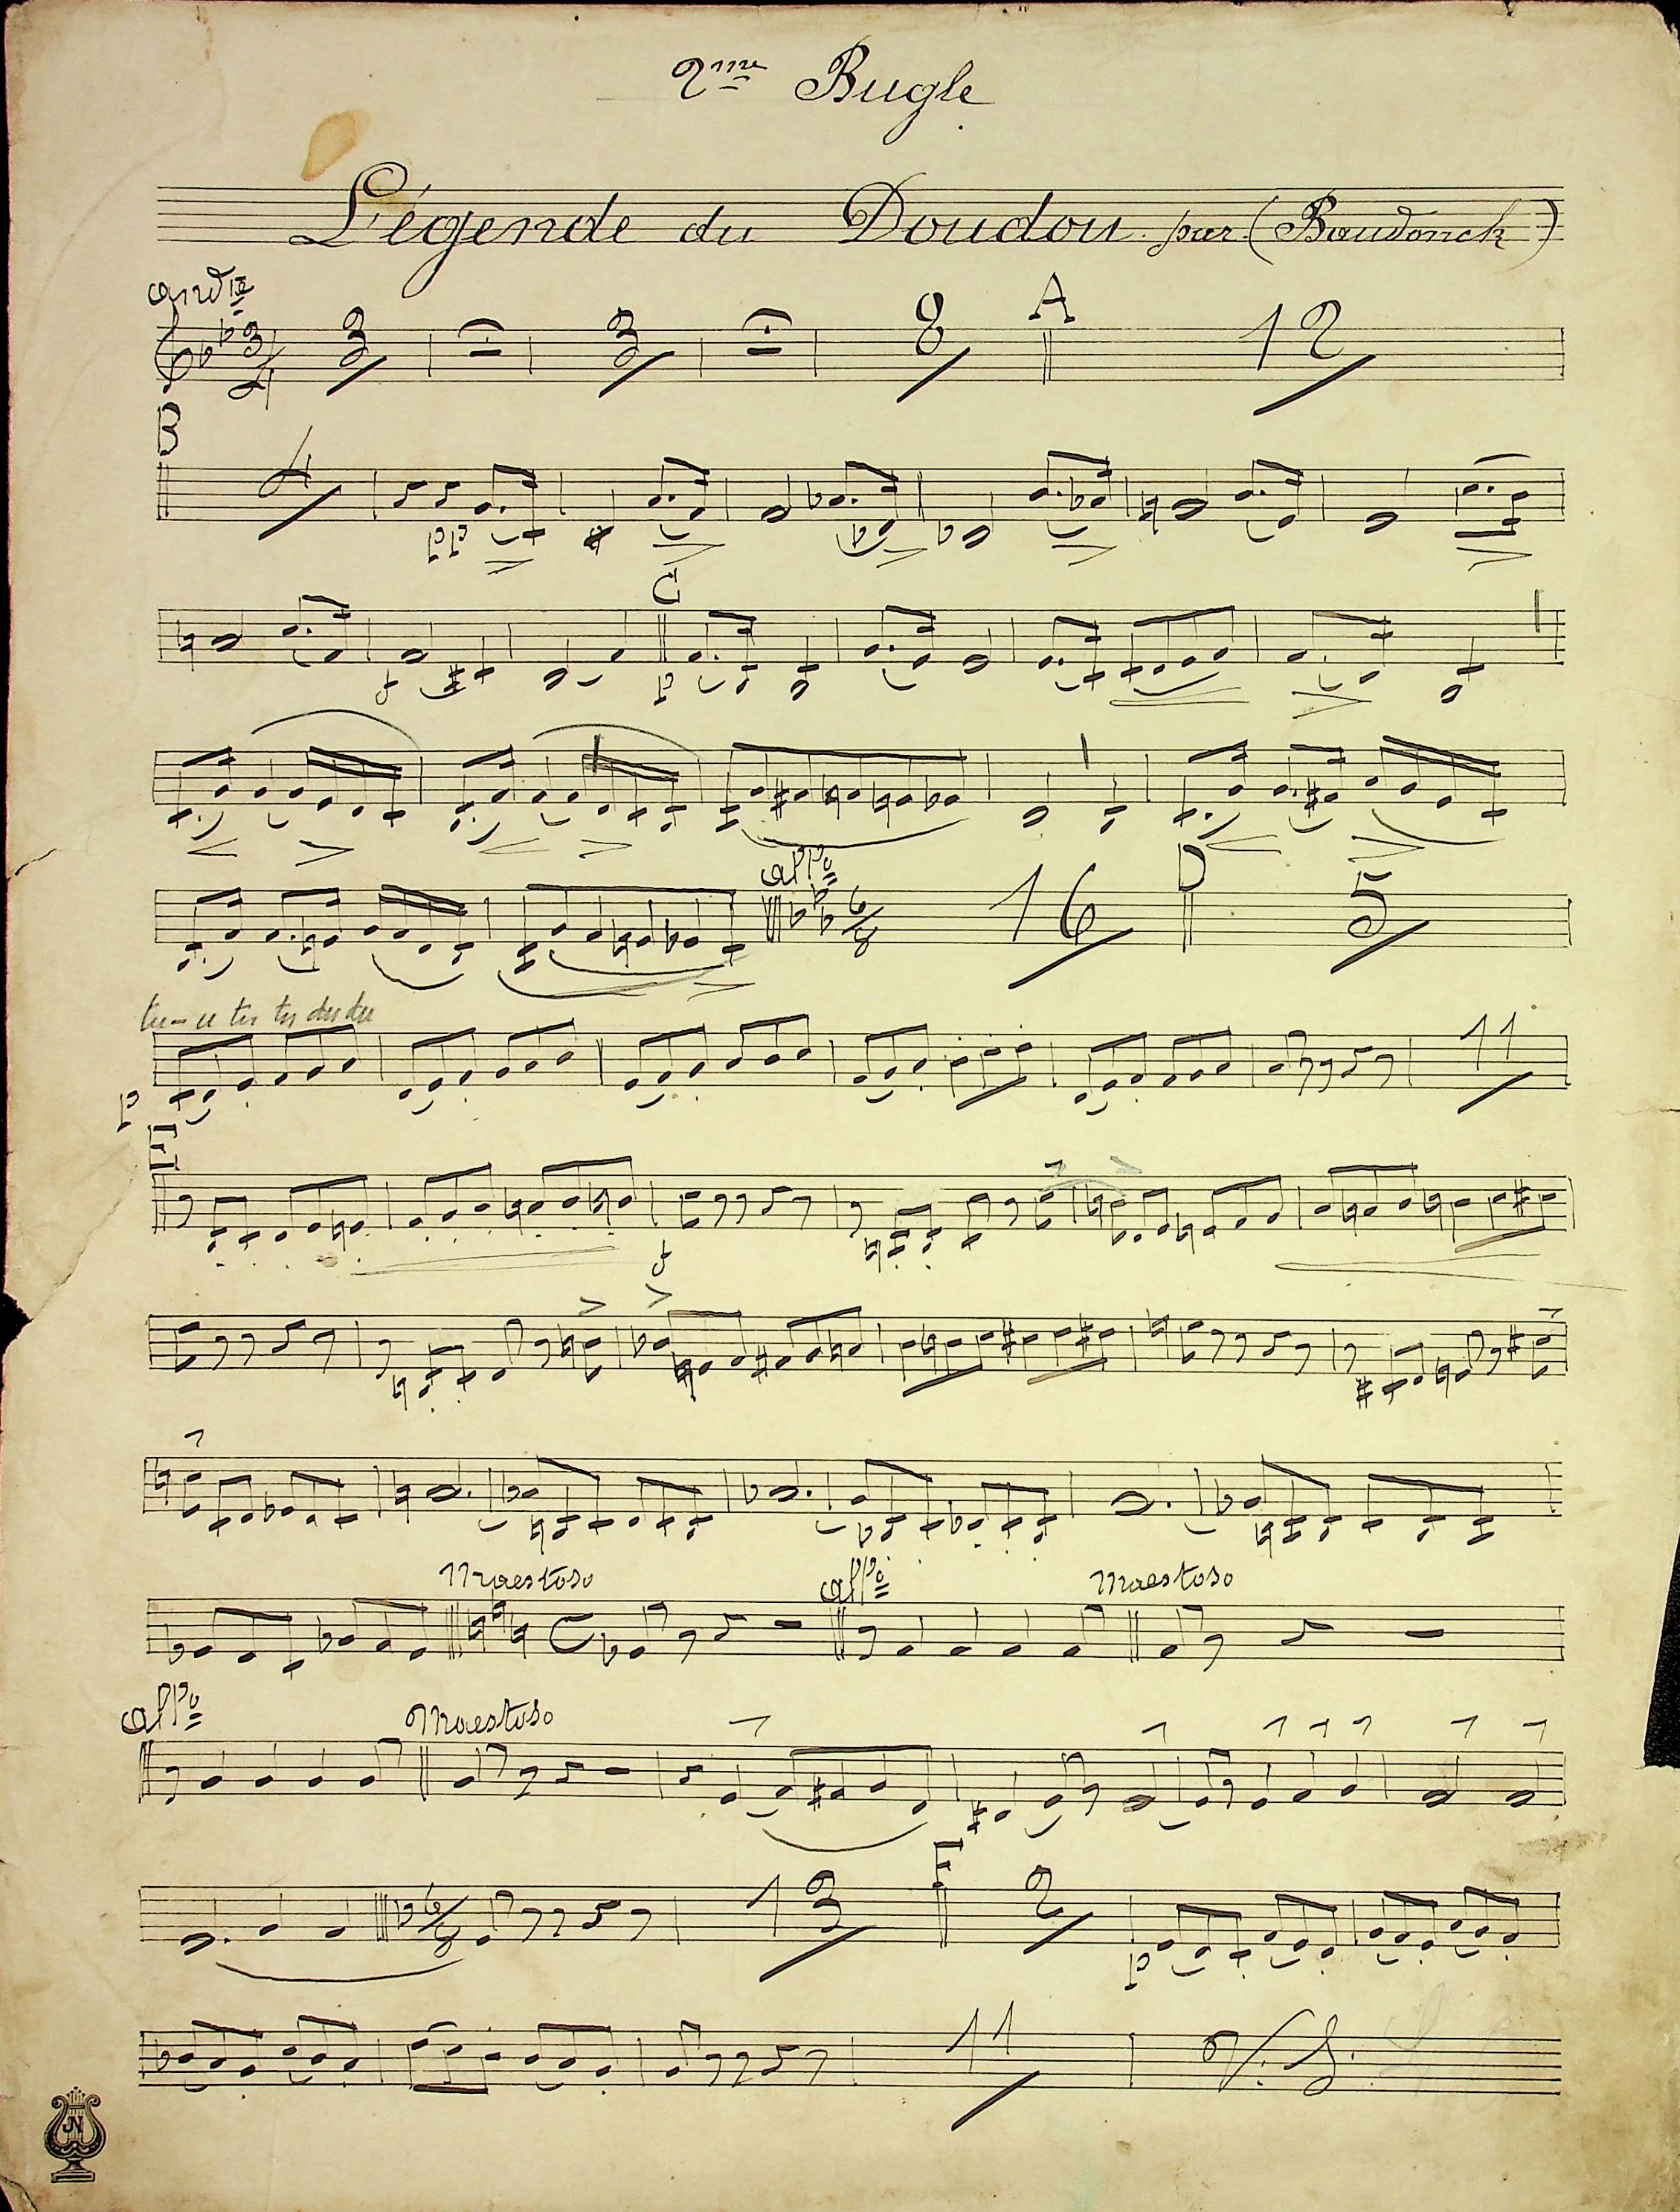 2me Bugle
Légende du Doudou par (Baudonck)
andte
3 4 3 3 8 A 12
B
4
pp
C
f p
allo
6 8 16 D 5
tu-u tu tu du du
p 11
E
f
Maestoso allo Maestoso
allo Maestoso
6 8 13 F 2
p
11 V. S.
JN